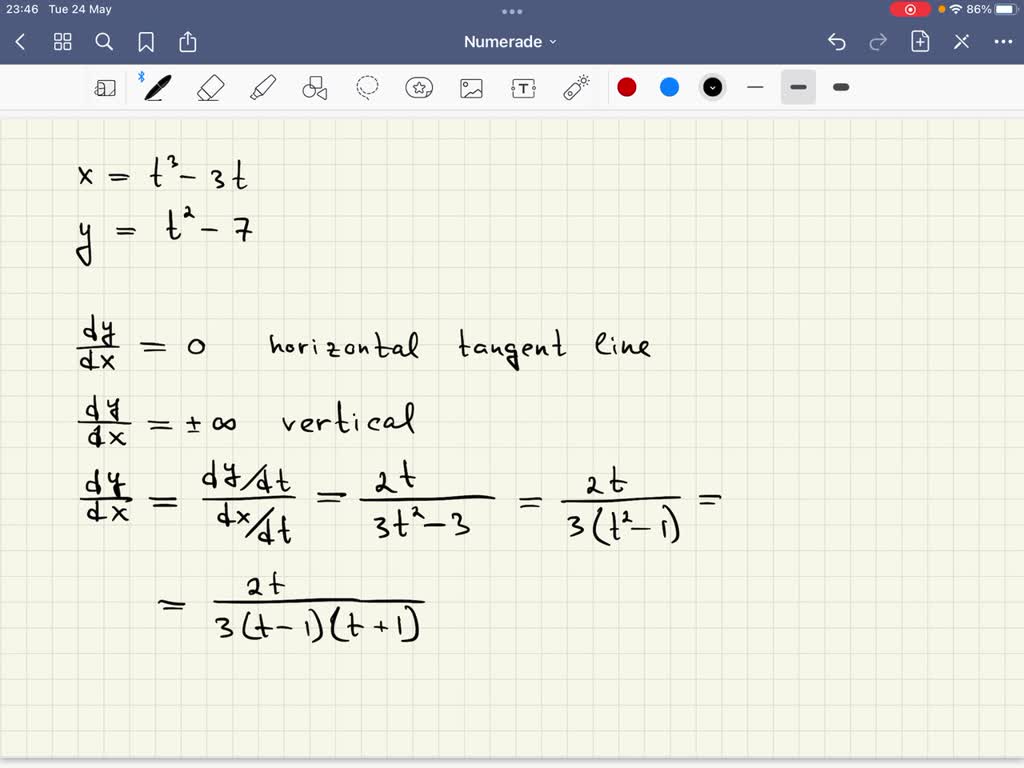 23:46 Tue 24 May 86%
Numerade
T
x = t³ - 3t
y = t² - 7
dy/dx = 0 horizontal tangent line
dy/dx = ± ∞ vertical
dy/dx = (dy/dt)/(dx/dt) = 2t/(3t² - 3) = 2t/(3(t² - 1)) =
= 2t/(3(t - 1)(t + 1))